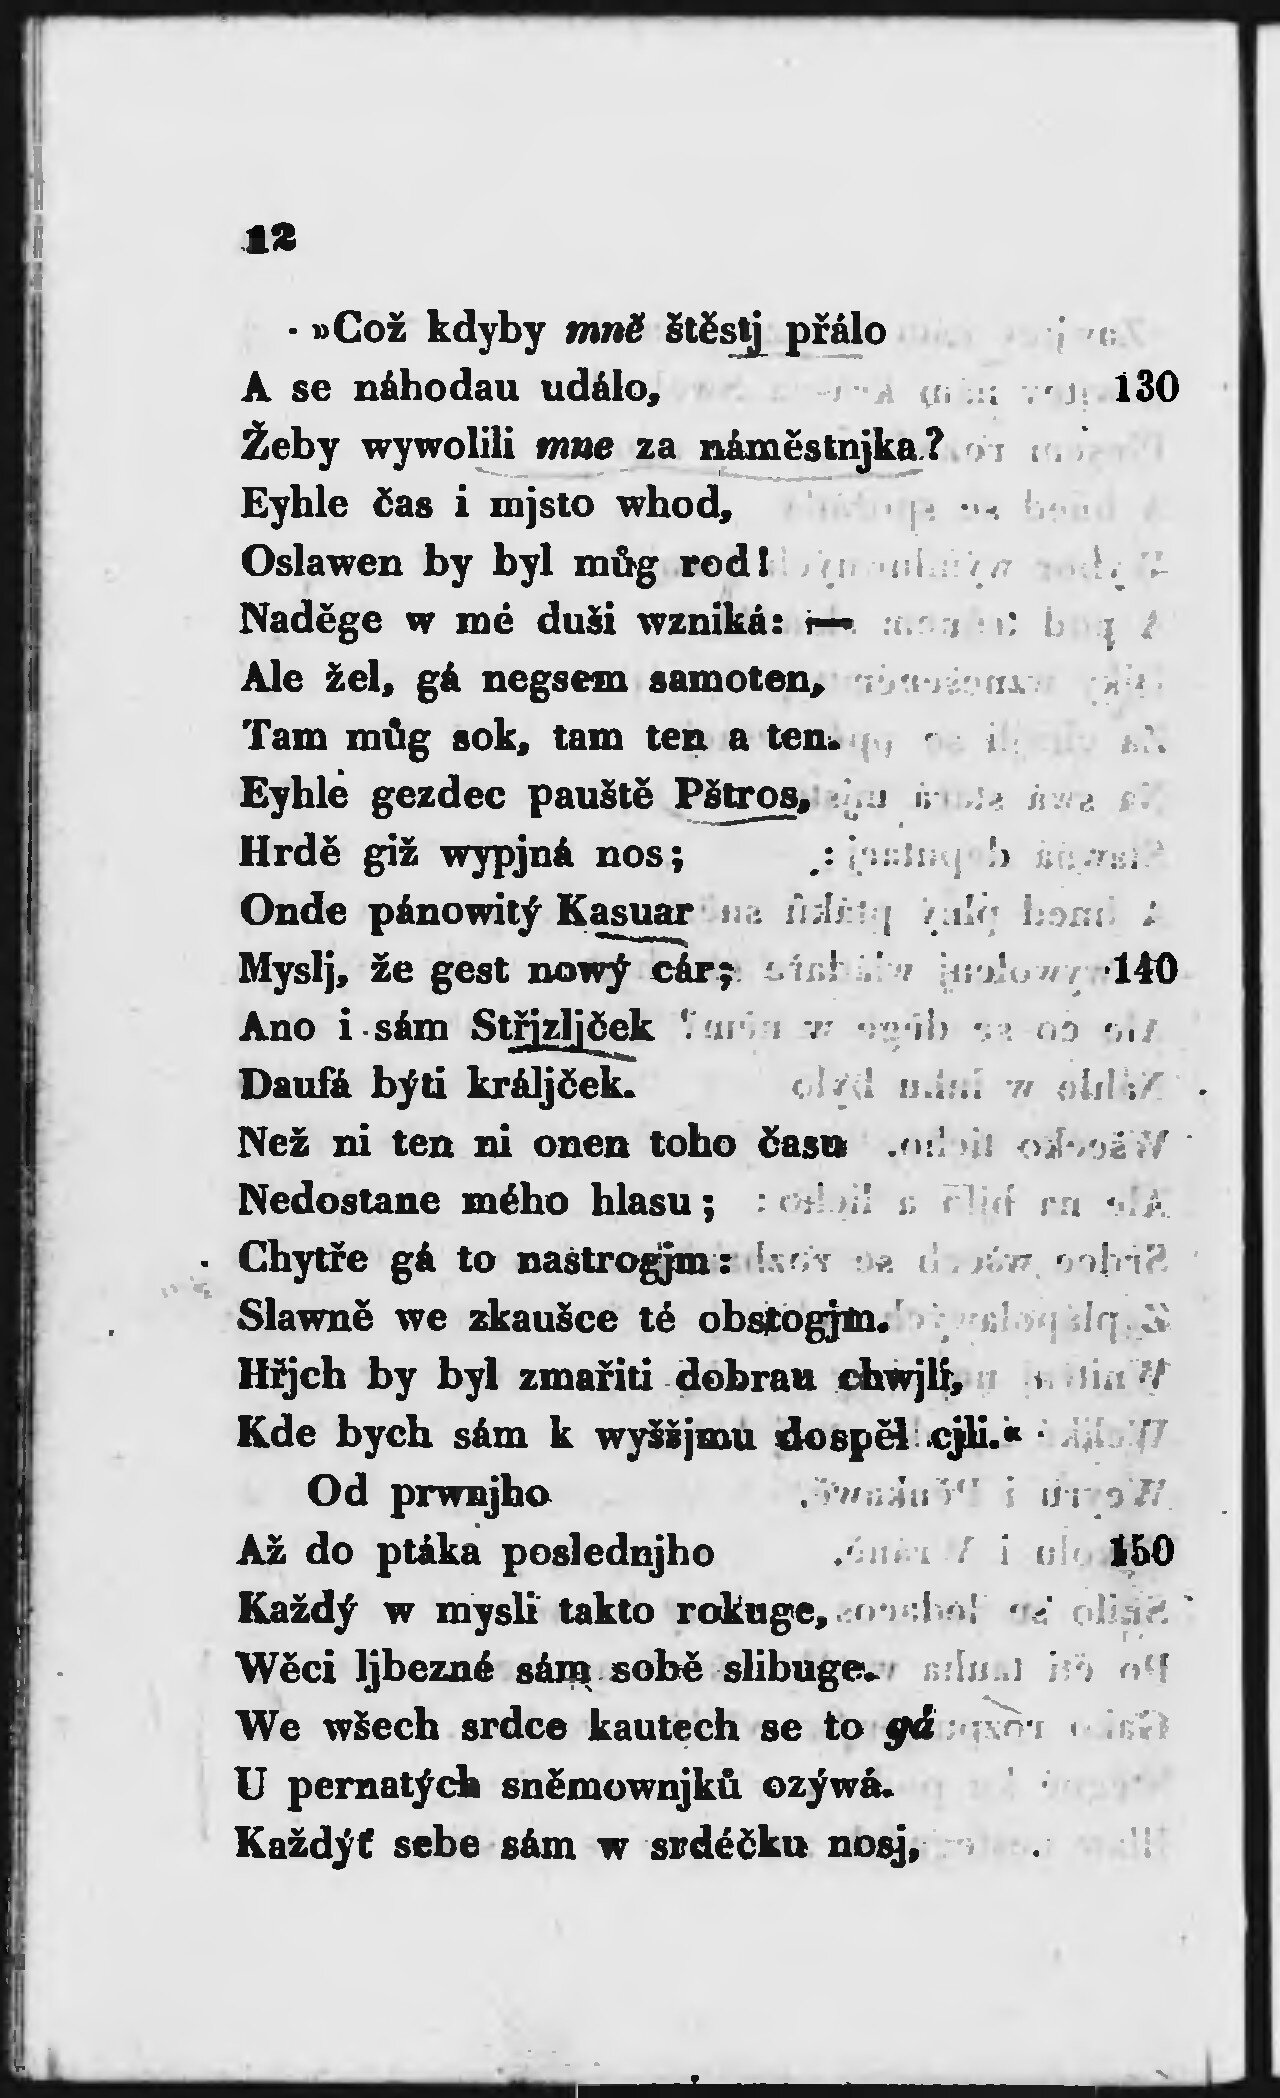 12
»Což kdyby mně štěstj přálo
A se náhodau událo, 130
Žeby wywolili mne za náměstnjka?
Eyhle čas i mjsto whod,
Oslawen by byl můg rod!
Naděge w mé duši wzniká: —
Ale žel, gá negsem samoten,
Tam můg sok, tam ten a ten.
Eyhle gezdec pauště Pštros,
Hrdě giž wypjná nos;
Onde pánowitý Kasuar
Myslj, že gest nowý cár; 140
Ano i sám Střjzljček
Daufá býti králjček.
Než ni ten ni onen toho času
Nedostane mého hlasu;
Chytře gá to nastrogjm:
Slawně we zkaušce té obstogjm.
Hřjch by byl zmařiti dobrau chwjli,
Kde bych sám k wyššjmu dospěl cjli.«
Od prwnjho
Až do ptáka poslednjho 150
Každý w mysli takto rokuge,
Wěci ljbezné sám sobě slibuge.
We wšech srdce kautech se to gá
U pernatých sněmownjků ozýwá.
Každýť sebe sám w srdéčku nosj,